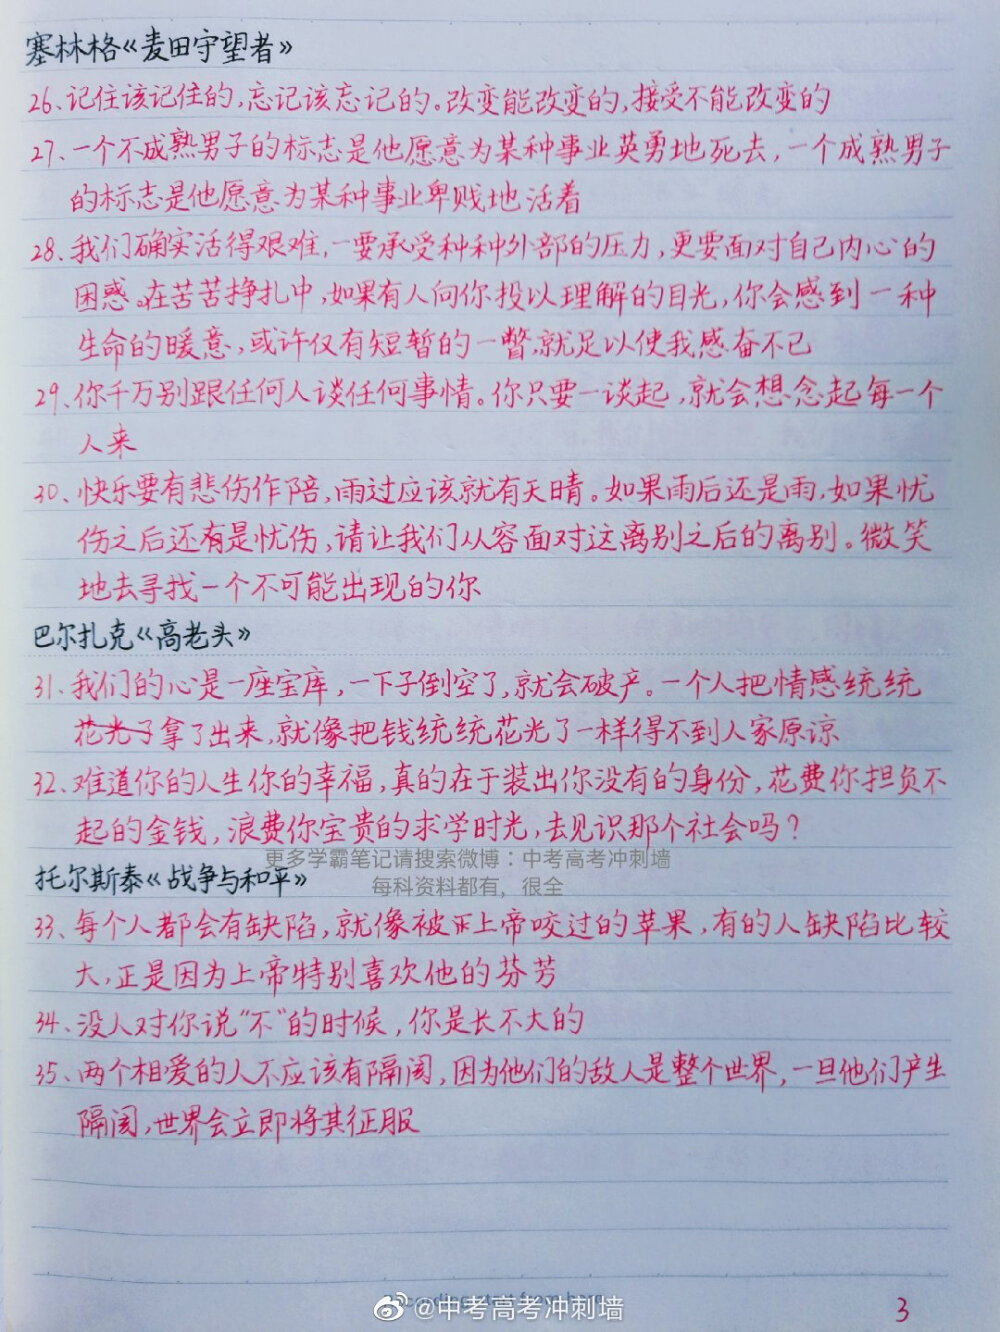 塞林格《麦田守望者》
26、记住该记住的,忘记该忘记的。改变能改变的,接受不能改变的
27、一个不成熟男子的标志是他愿意为某种事业英勇地死去,一个成熟男子
的标志是他愿意为某种事业卑贱地活着
28、我们确实活得艰难,一要承受种种外部的压力,更要面对自己内心的
困惑。在苦苦挣扎中,如果有人向你投以理解的目光,你会感到一种
生命的暖意,或许仅有短暂的一瞥,就足以使我感奋不已
29、你千万别跟任何人谈任何事情。你只要一谈起,就会想念起每一个
人来
30、快乐要有悲伤作陪,雨过应该就有天晴。如果雨后还是雨,如果忧
伤之后还是忧伤,请让我们从容面对这离别之后的离别。微笑
地去寻找一个不可能出现的你
巴尔扎克《高老头》
31、我们的心是一座宝库,一下子倒空了,就会破产。一个人把情感统统
花光了拿了出来,就像把钱统统花光了一样得不到人家原谅
32、难道你的人生你的幸福,真的在于装出你没有的身份,花费你担负不
起的金钱,浪费你宝贵的求学时光,去见识那个社会吗?
更多学霸笔记请搜索微博:中考高考冲刺墙
每科资料都有,很全
托尔斯泰《战争与和平》
33、每个人都会有缺陷,就像被上帝咬过的苹果,有的人缺陷比较
大,正是因为上帝特别喜欢他的芬芳
34、没人对你说“不”的时候,你是长不大的
35、两个相爱的人不应该有隔阂,因为他们的敌人是整个世界,一旦他们产生
隔阂,世界会立即将其征服
@中考高考冲刺墙
3